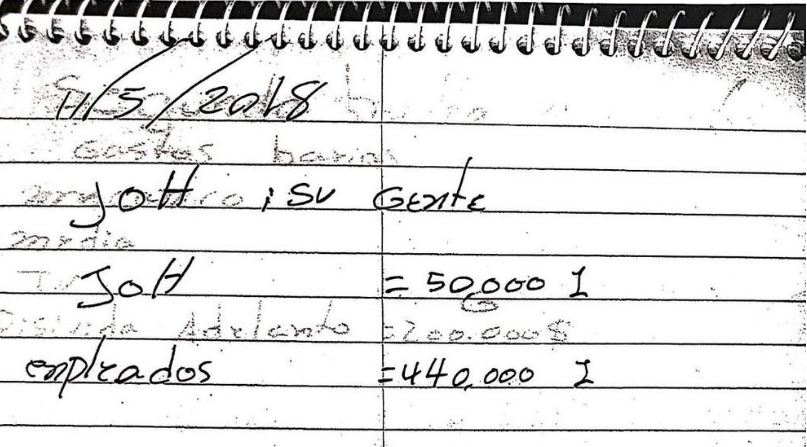 11/5/2018
Gastos barios
JOH i su GENtE
media
JOH = 50,000 I
Adelanto =200.000$
emplEados =440,000 I